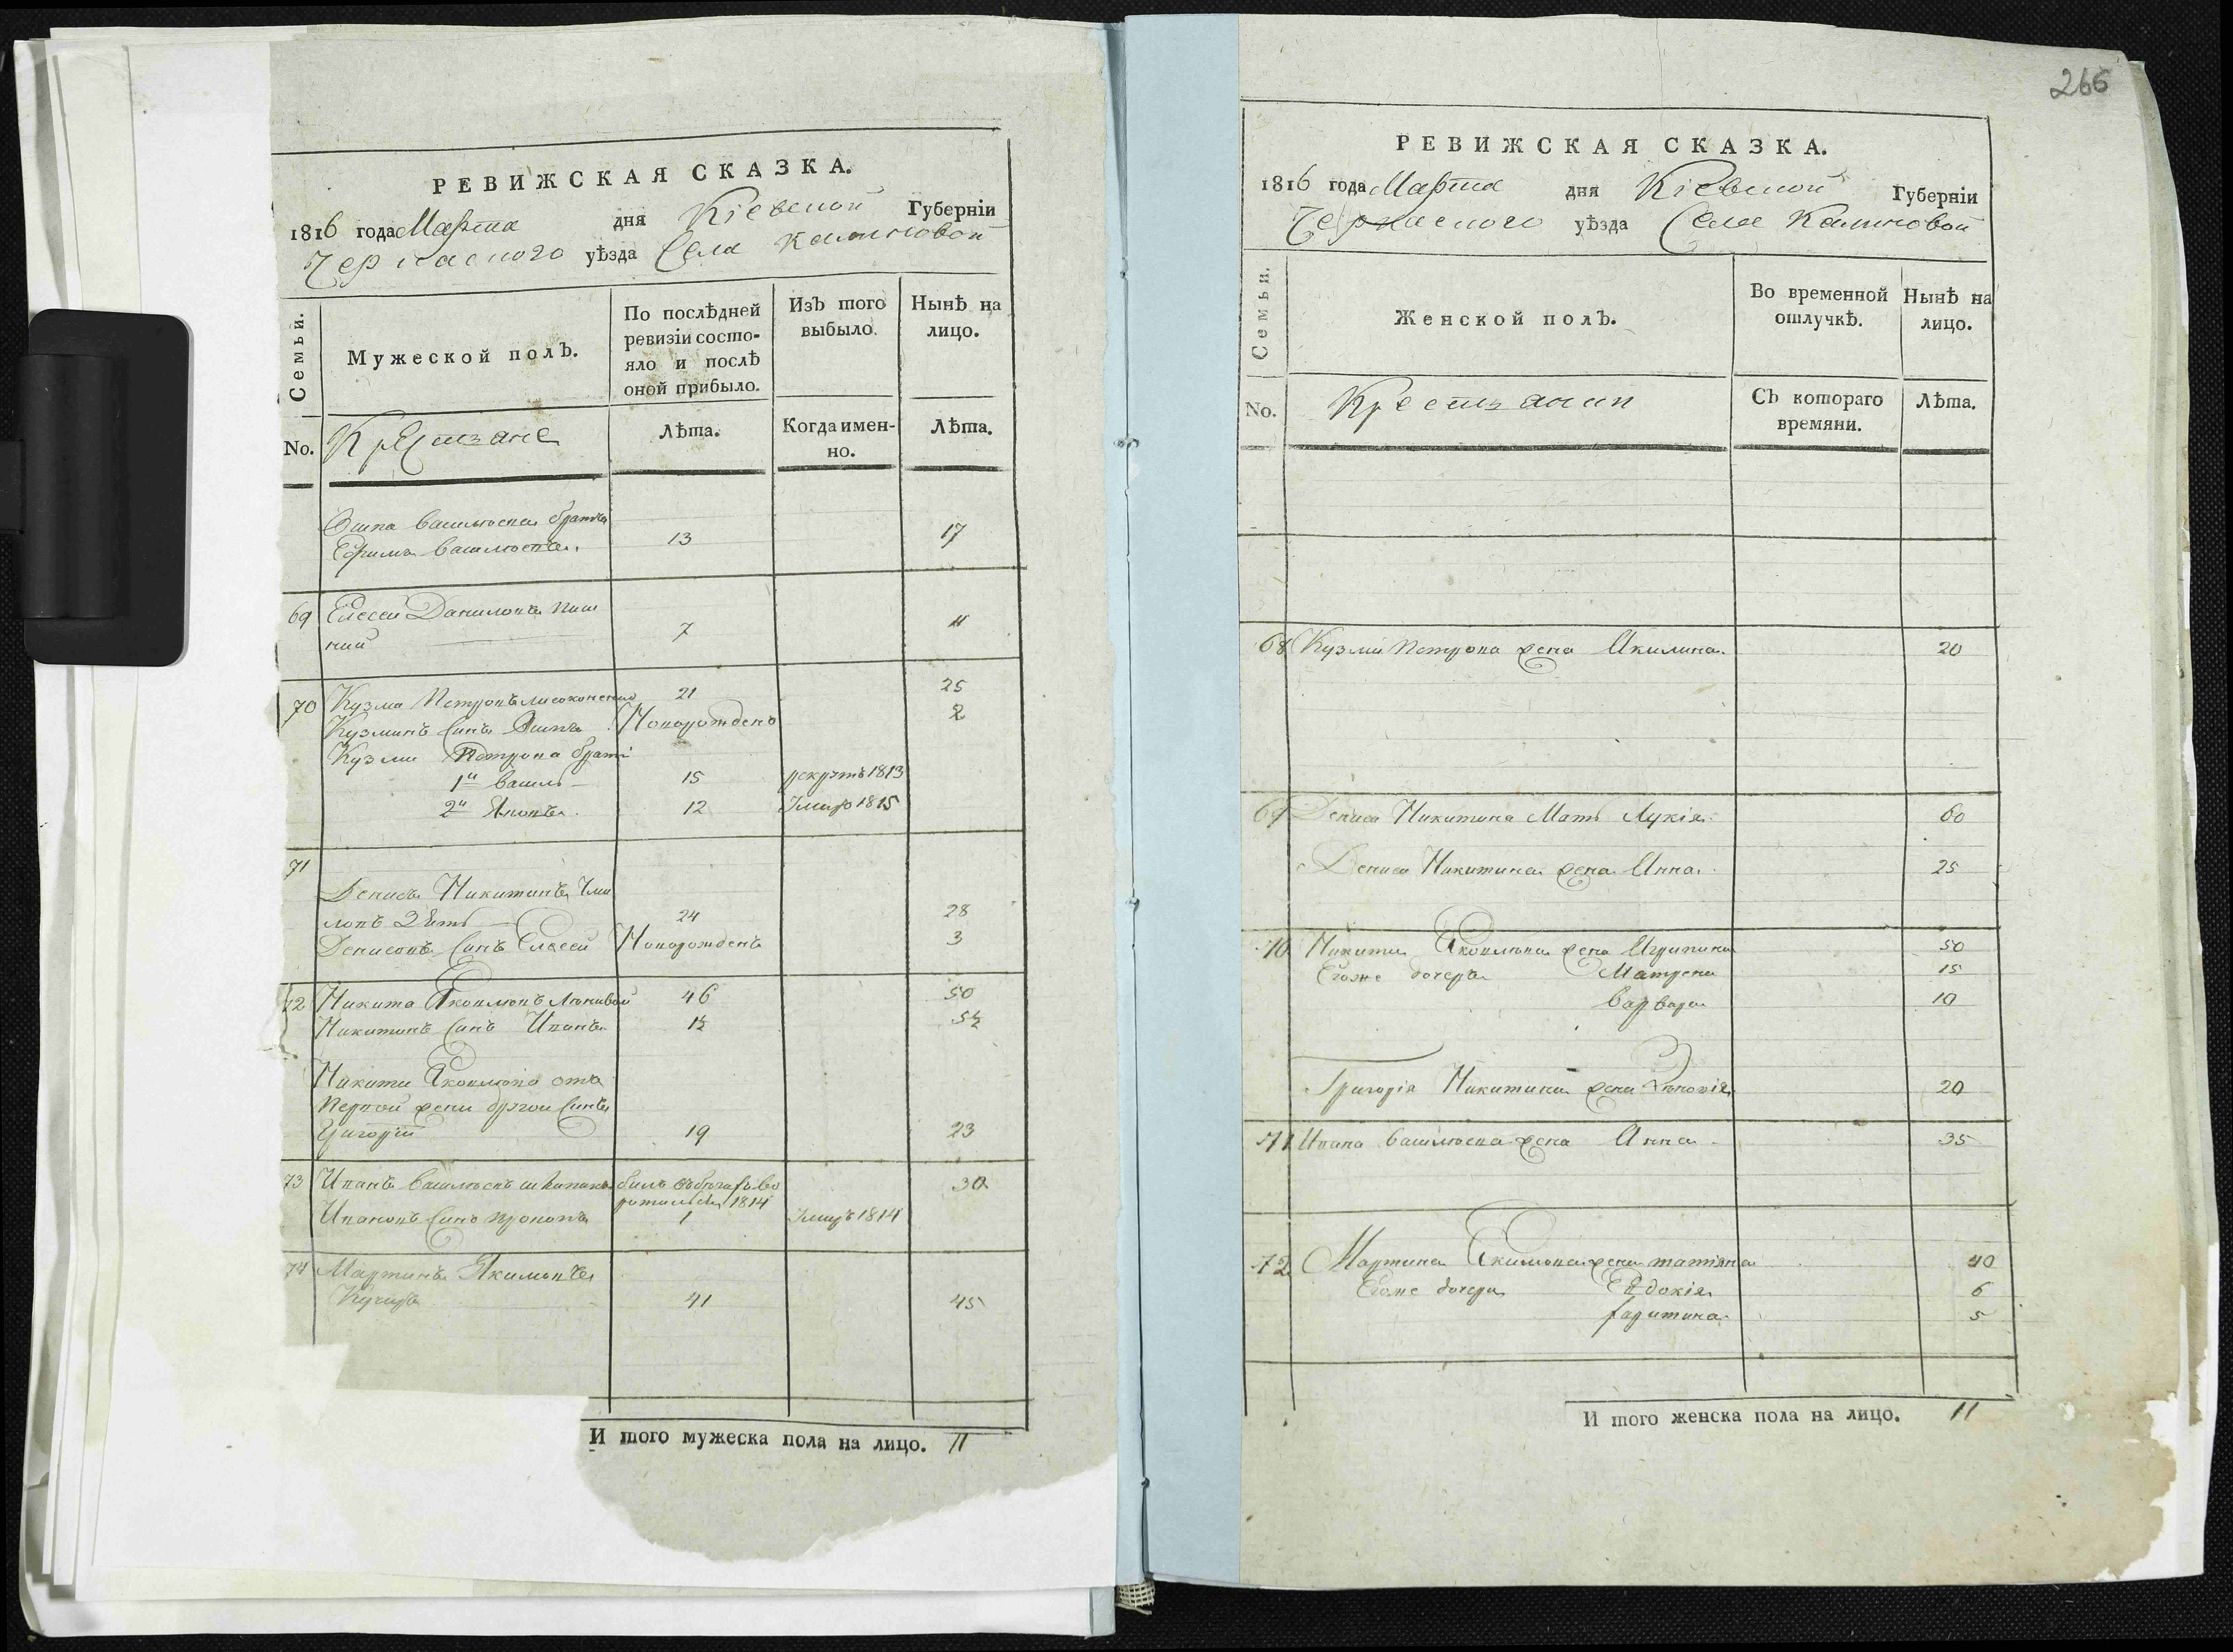 РЕВИЖСКАЯ СКАЗКА.
1816 года Марта дня Кіевской Губерніи
Черкаского уѣзда Села Калиновой
Семьи.
Мужеской полЪ.
По послѣдней ревизіи состояло и послѣ оной прибыло.
ИзЪ того выбыло.
НынѢ на лицо.
No. Крестзяне
Лѣта.
Когда именно.
Лѣта.
Осипа Васильева братъ
Ефимъ Васильевъ. 13 17
69 Елесей Даниловъ
7 11
70 Кузма Петровъ 21 25
Кузминъ синъ Осипъ Новорожденъ 2
Кузми Петрова брати
1й Василь 15 рекрутъ 1813
2й Яковъ 12 Умиръ 1815
71
Денисъ Никитинъ
зять 24 28
Денисовъ синъ Елесей Новорожденъ 3
72 Никита Яковлевъ 46 50
Никитинъ синъ Иванъ 1½ 5½
Никити Яковлева отъ
Первой жени другой синъ
Григорій 19 23
73 Иванъ Васильевъ билъ въ бегах во 30
ротился 1814
Ивановъ синъ Прокопъ 1 Умиръ 1814
74 Мартинъ Якимовъ
41 45
И того мужеска пола на лицо. 11
266
РЕВИЖСКАЯ СКАЗКА.
1816 года Марта дня Кіевской Губерніи
Черкаского уѣзда Села Калиновой
Семьи.
Женской полЪ.
Во временной отлучкѣ.
НынѢ на лицо.
No. Крестзянки
СЬ котораго времяни.
Лѣта.
68 Кузми Петрова жена Акилина 20
69 Дениса Никитина Мать Лукія 60
Дениса Никитина жена Анна 25
70 Никити Яковлева жена Агрипина 50
Егоже дочеръ Матрена 15
Варвара 10
Григорія Никитина жена 20
71 Ивана Васильева жена Анна 35
72 Мартина Якимова жена татіяна 40
Егоже дочери Евдокія 6
5
И того женска пола на лицо. 11